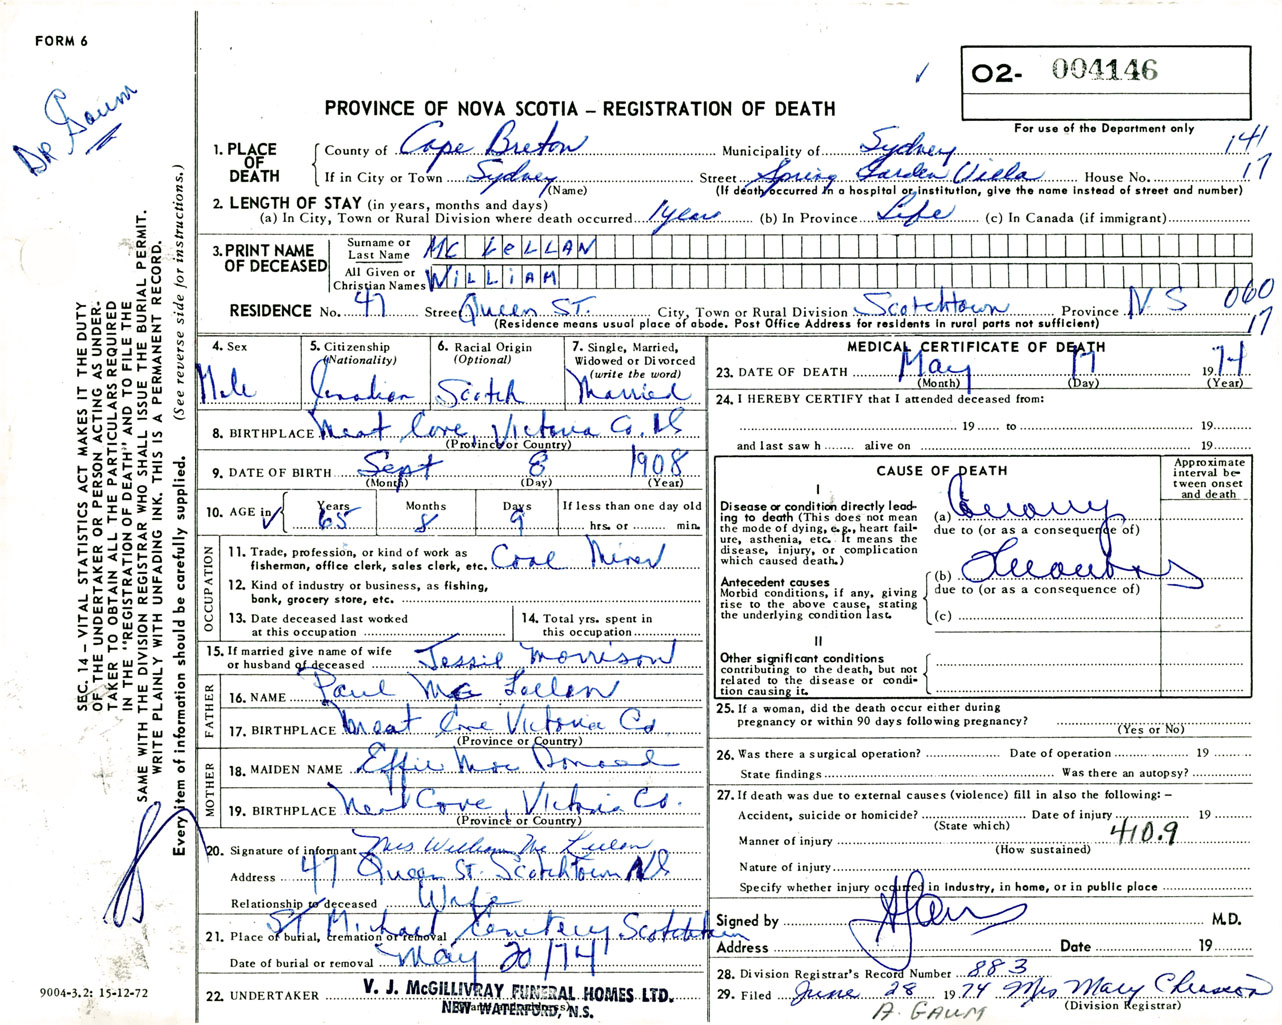 FORM 6
Dr Gaum
O2- 004146
For use of the Department only
PROVINCE OF NOVA SCOTIA – REGISTRATION OF DEATH
1. PLACE OF DEATH
County of Cape Breton Municipality of Sydney 141
If in City or Town Sydney (Name) Street Spring Garden Villa House No. 17
(If death occurred in a hospital or institution, give the name instead of street and number)
2. LENGTH OF STAY (in years, months and days)
(a) In City, Town or Rural Division where death occurred 1 year (b) In Province Life (c) In Canada (if immigrant)
3. PRINT NAME OF DECEASED
Surname or Last Name Mc LeLLAN
All Given or Christian Names WILLIAM
RESIDENCE No. 47 Street Queen ST. City, Town or Rural Division Scotchtown Province N.S 060
(Residence means usual place of abode. Post Office Address for residents in rural parts not sufficient) 17
4. Sex Male
5. Citizenship (Nationality) Canadian
6. Racial Origin (Optional) Scotch
7. Single, Married, Widowed or Divorced (write the word) Married
8. BIRTHPLACE Meat Cove, Victoria Co. NS
(Province or Country)
9. DATE OF BIRTH Sept 8 1908
(Month) (Day) (Year)
10. AGE in Years 65 Months 8 Days 9 If less than one day old
hrs. or min.
OCCUPATION
11. Trade, profession, or kind of work as fisherman, office clerk, sales clerk, etc. Coal Miner
12. Kind of industry or business, as fishing, bank, grocery store, etc.
13. Date deceased last worked at this occupation
14. Total yrs. spent in this occupation
15. If married give name of wife or husband of deceased Jessie Morrison
FATHER
16. NAME Paul Mc Lellan
17. BIRTHPLACE Meat Cove Victoria Co.
(Province or Country)
MOTHER
18. MAIDEN NAME Effie Mac Donald
19. BIRTHPLACE Meat Cove, Victoria Co.
(Province or Country)
20. Signature of informant Mrs William Mc Lellan
Address 47 Queen St. Scotchtown NS
Relationship to deceased Wife
21. Place of burial, cremation or removal St. Michael Cemetery Scotchtown
Date of burial or removal May 20/74
22. UNDERTAKER V. J. McGILLIVRAY FUNERAL HOMES LTD.
NEW WATERFORD, N.S.
MEDICAL CERTIFICATE OF DEATH
23. DATE OF DEATH May 17 1974
(Month) (Day) (Year)
24. I HEREBY CERTIFY that I attended deceased from:
19 to 19
and last saw h alive on 19
CAUSE OF DEATH
Approximate interval between onset and death
I
Disease or condition directly leading to death (This does not mean the mode of dying, e.g., heart failure, asthenia, etc. It means the disease, injury, or complication which caused death.)
(a) Coronary
due to (or as a consequence of)
Antecedent causes
Morbid conditions, if any, giving rise to the above cause, stating the underlying condition last.
(b) Thrombosis
due to (or as a consequence of)
(c)
II
Other significant conditions contributing to the death, but not related to the disease or condition causing it.
25. If a woman, did the death occur either during pregnancy or within 90 days following pregnancy?
(Yes or No)
26. Was there a surgical operation? Date of operation 19
State findings Was there an autopsy?
27. If death was due to external causes (violence) fill in also the following: –
Accident, suicide or homicide? Date of injury 19
(State which)
Manner of injury 410.9
(How sustained)
Nature of injury
Specify whether injury occurred in industry, in home, or in public place
Signed by A Gaum M.D.
Address Date 19
28. Division Registrar's Record Number 883
29. Filed June 28 1974 Mrs Mary Chiasson
(Division Registrar)
A. GAUM
SEC. 14 – VITAL STATISTICS ACT MAKES IT THE DUTY
OF THE UNDERTAKER OR PERSON ACTING AS UNDER-
TAKER TO OBTAIN ALL THE PARTICULARS REQUIRED
IN THE "REGISTRATION OF DEATH" AND TO FILE THE
SAME WITH THE DIVISION REGISTRAR WHO SHALL ISSUE THE BURIAL PERMIT.
WRITE PLAINLY WITH UNFADING INK. THIS IS A PERMANENT RECORD.
Every item of information should be carefully supplied. (See reverse side for instructions.)
9004-3.2: 15-12-72